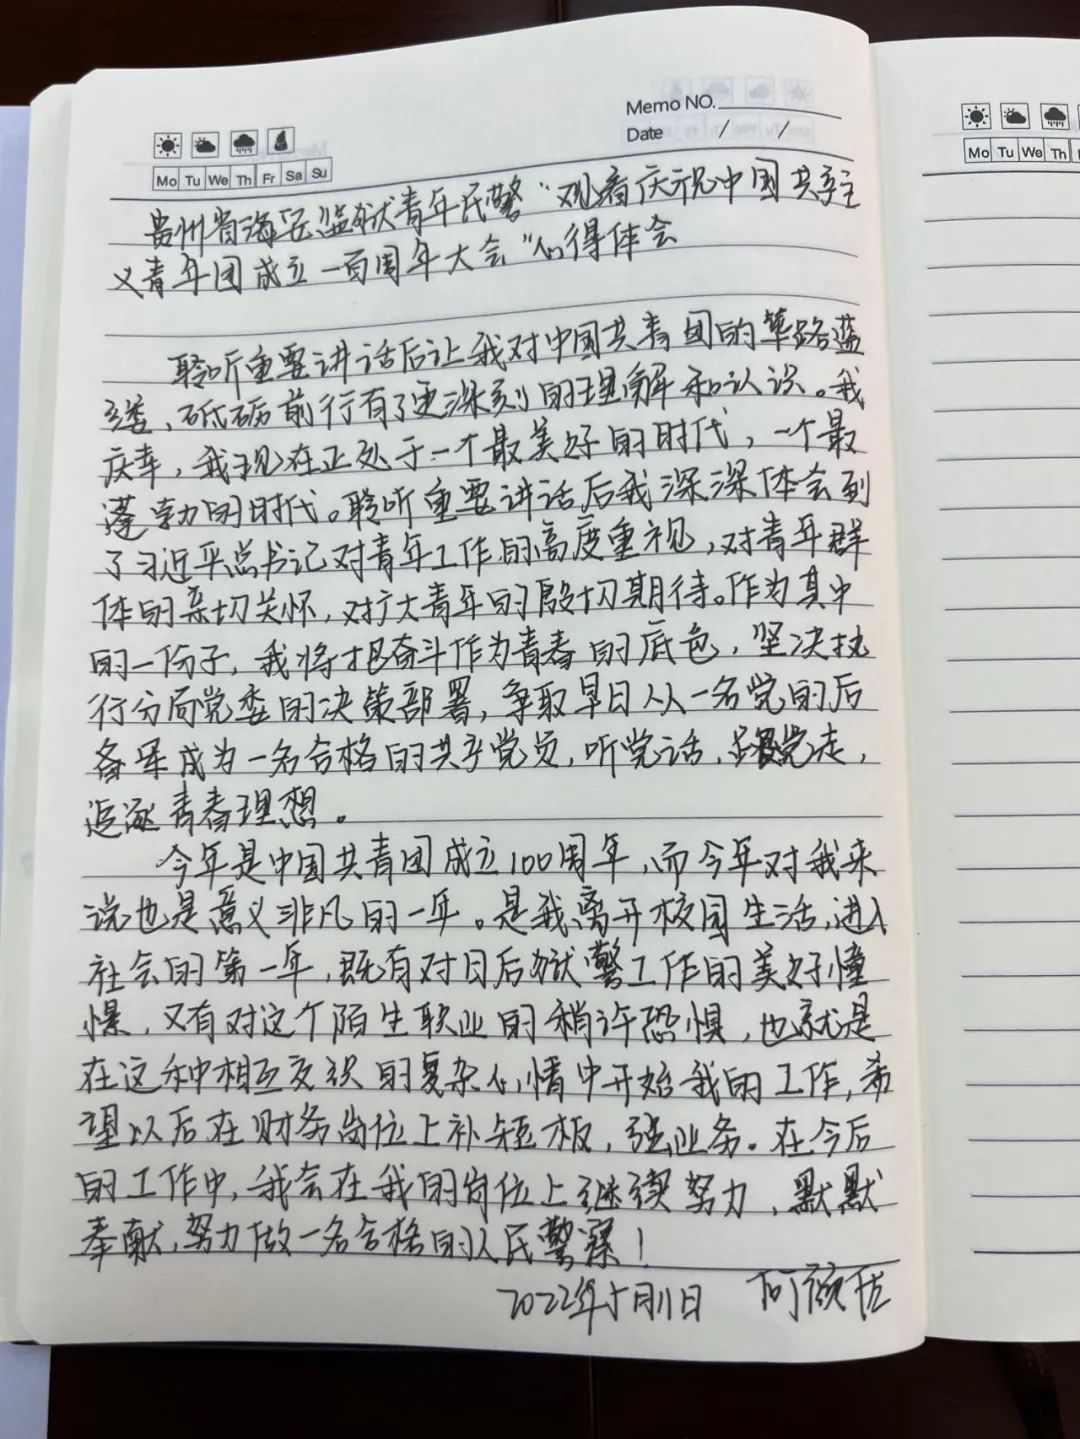 Memo NO.
Date / /
Mo Tu We Th Fr Sa Su
Mo Tu We Th
贵州省海子监狱青年民警“观看庆祝中国共产主
义青年团成立一百周年大会”心得体会
聆听重要讲话后让我对中国共青团的筚路蓝
缕、砥砺前行有了更深刻的理解和认识。我
庆幸，我现在正处于一个最美好的时代，一个最
蓬勃的时代。聆听重要讲话后我深深体会到
了习近平总书记对青年工作的高度重视，对青年群
体的亲切关怀，对扩大青年的殷切期待。作为其中
的一份子，我将把奋斗作为青春的底色，坚决执
行分局党委的决策部署，争取早日从一名党的后
备军成为一名合格的共产党员，听党话，跟党走，
追逐青春理想。
今年是中国共青团成立100周年，而今年对我来
说也是意义非凡的一年。是我离开校园生活，进入
社会的第一年，既有对日后狱警工作的美好憧
憬，又有对这个陌生职业的稍许恐惧，也就是
在这种相互交织的复杂心情中开始我的工作，希
望以后在财务岗位上补短板，强业务。在今后
的工作中，我会在我的岗位上继续努力，默默
奉献，努力做一名合格的人民警察！
2022年5月11日